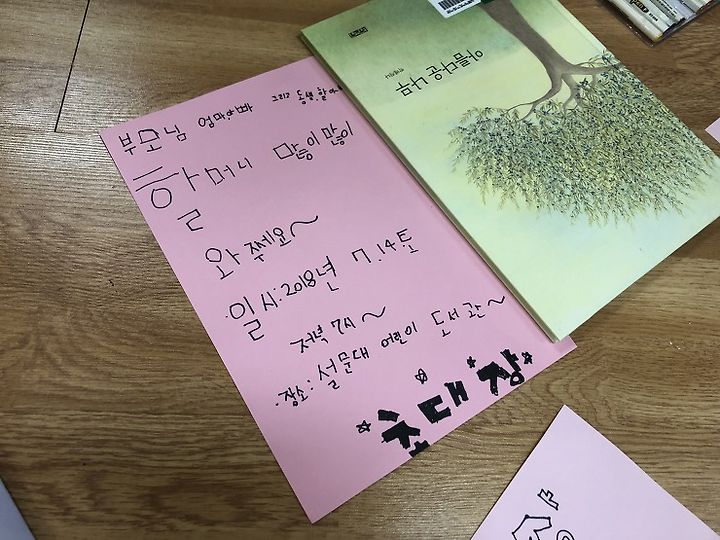 부모님 엄마아빠 그리고 동생 할아
할머니 많이많이
와쭈세요~
·일시:2018년 7.14.토
저녁 7시~
·장소:설문대 어린이 도서관~
초대장
나무 공다물이